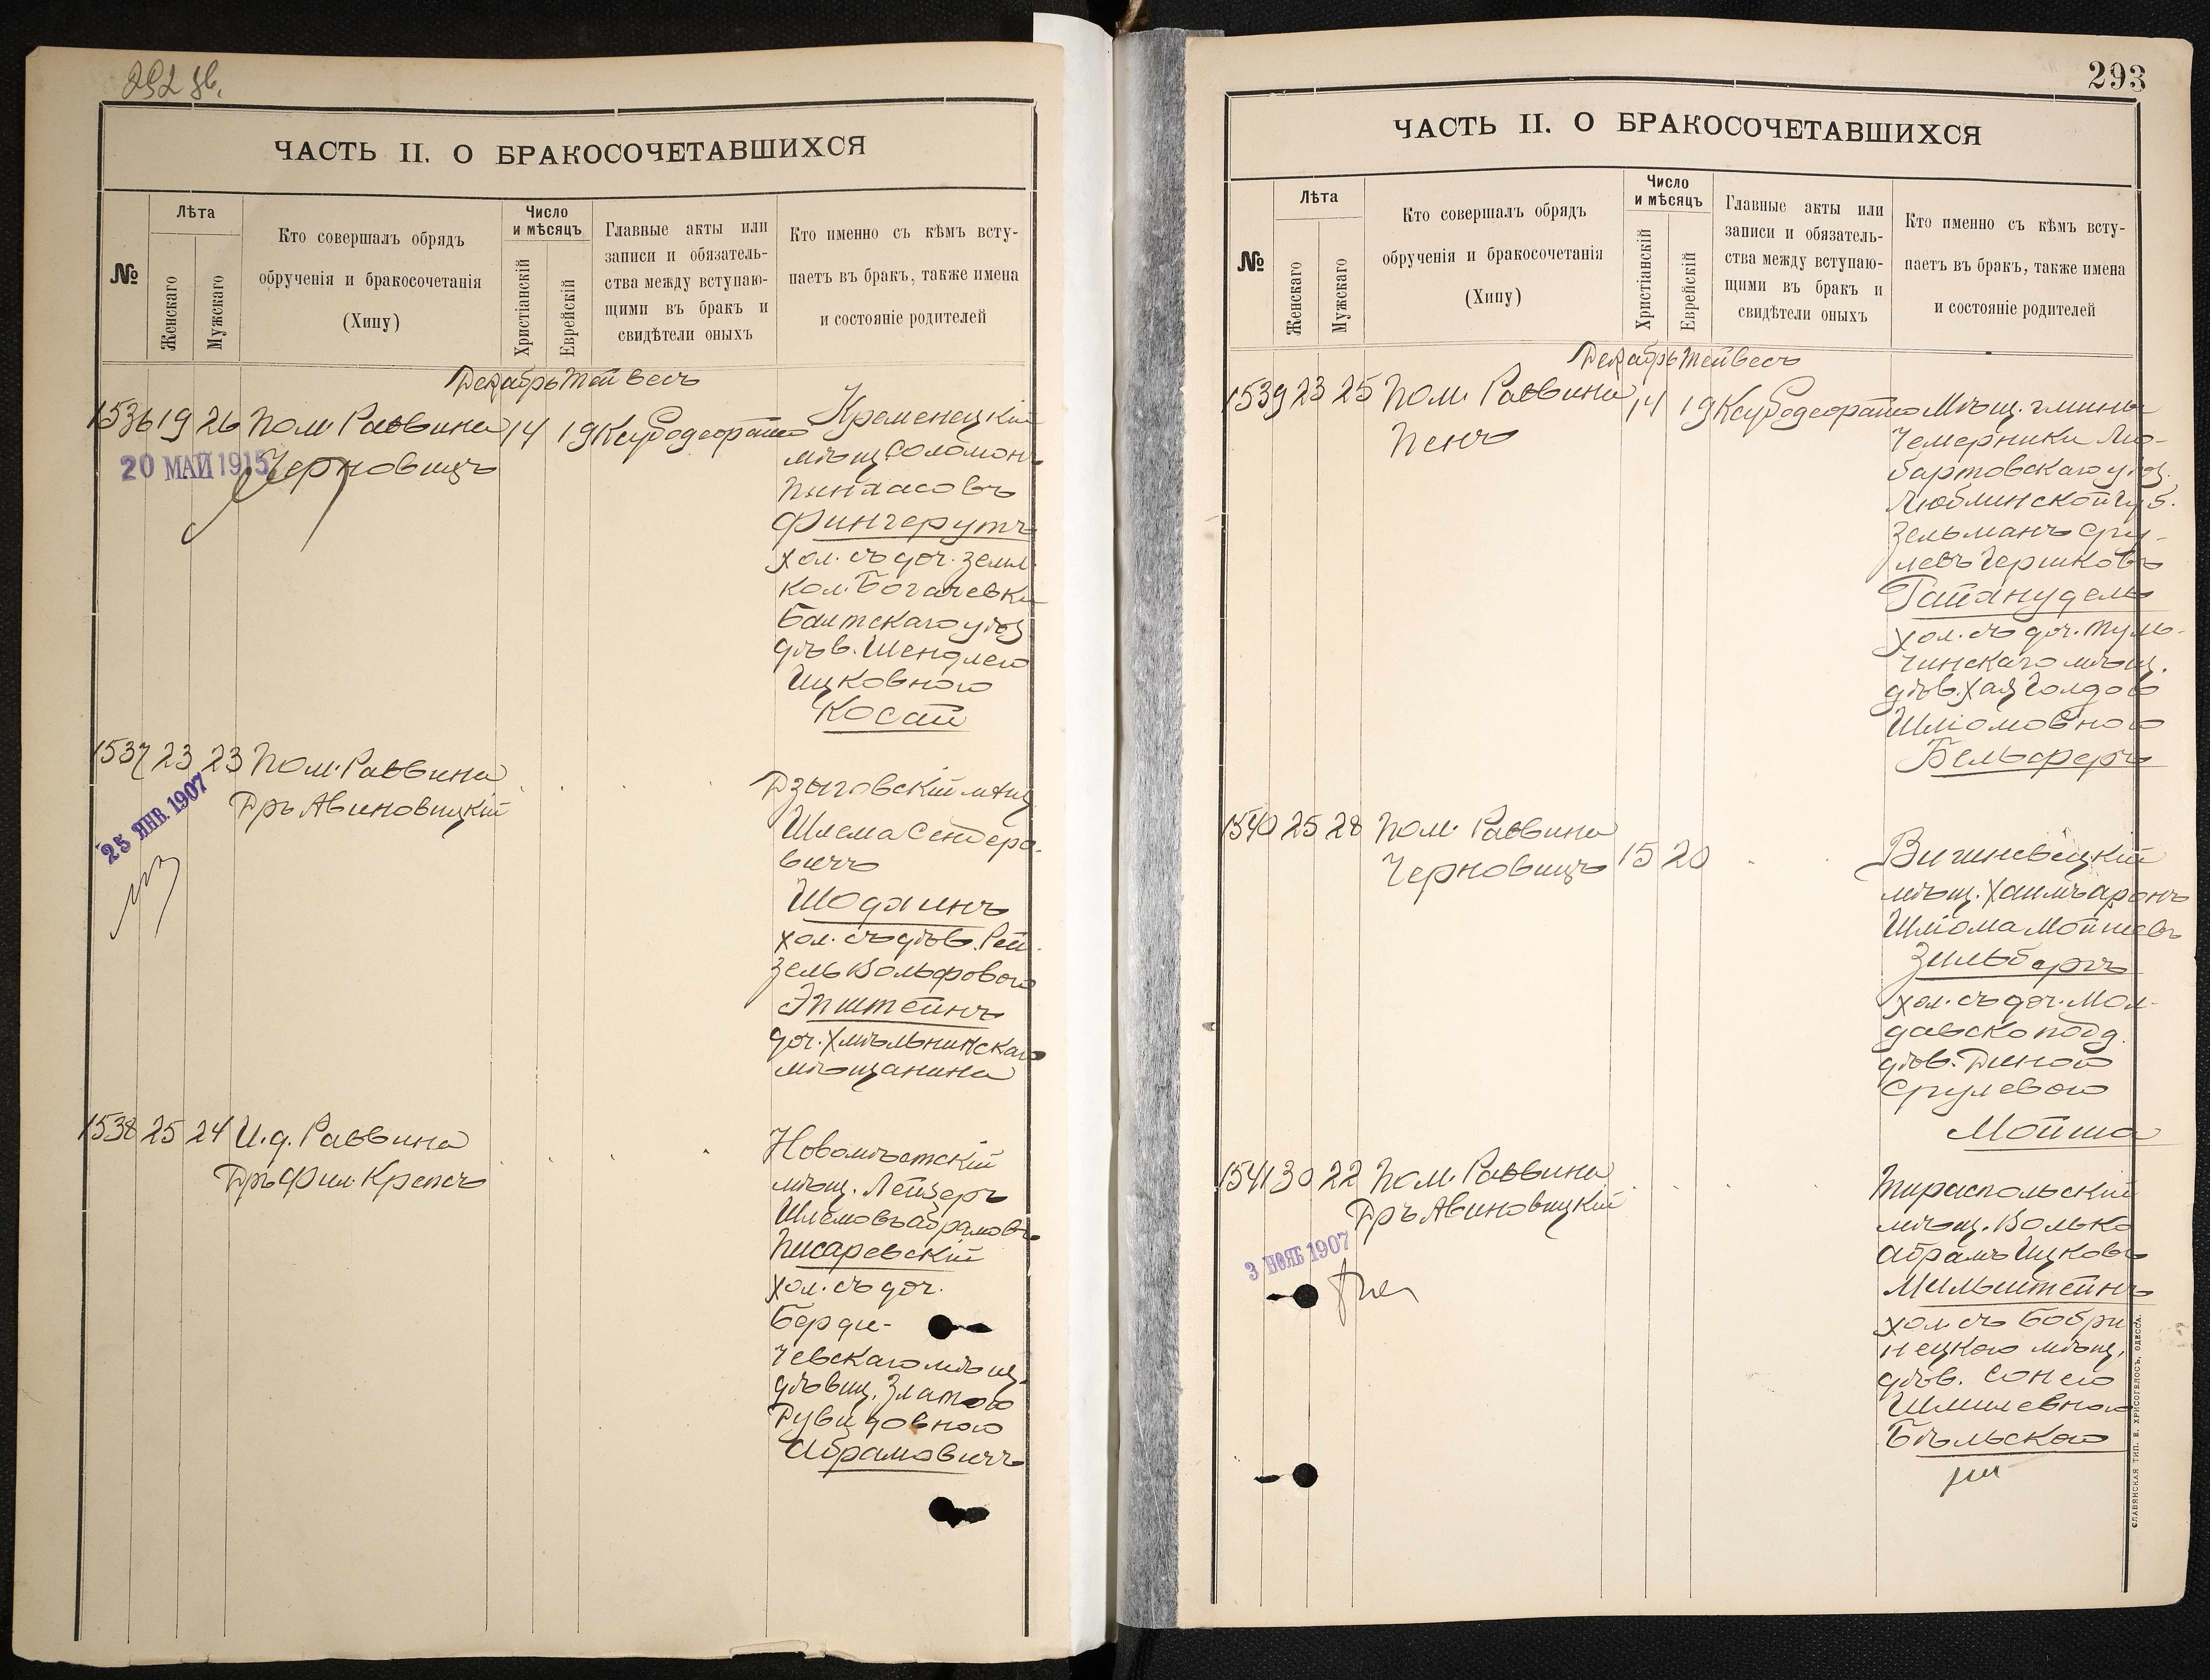 292 об.
ЧАСТЬ II. О БРАКОСОЧЕТАВШИХСЯ
№
Лѣта
Женскаго
Мужскаго
Кто совершалъ обрядъ
обрученія и бракосочетанія
(Хипу)
Число
и мѣсяцъ
Христіанскій
Еврейскій
Главные акты или
записи и обязатель-
ства между вступаю-
щими въ бракъ и
свидѣтели оныхъ
Кто именно съ кѣмъ всту-
паетъ въ бракъ, также имена
и состояніе родителей
Декабрь Тейвесъ
1536 19 26 Пом. Раввина 14 19
Черновицъ
20 МАЙ 1915
Кременецкій
мѣщ. Соломонъ
Пинхасовъ
Фингерутъ
хол. съ доч. земл.
кол. Богачевки
Балтскаго уѣз.
дѣв. Шендлею
Ицковною
Косай
1537 23 23 Пом. Раввина
Дръ Авиновицкій
25 ЯНВ. 1907
Дзыговскій мѣщ.
Шлема Сендеро-
вичъ
Шодхинъ
хол. съ дѣв. Рей-
зель Вольфовою
Эпштейнъ
доч. Хмѣльникскаго
мѣщанина
1538 25 24 И. д. Раввина
Дръ Фил. Крепсъ
Новомѣстскій
мѣщ. Лейзеръ
Шлемовъ Абрамовъ
Писаревскій
хол. съ доч.
Берди-
чевскаго мѣщ.
дѣвиц. Златою
Дувидовною
Абрамовичъ
293
ЧАСТЬ II. О БРАКОСОЧЕТАВШИХСЯ
№
Лѣта
Женскаго
Мужскаго
Кто совершалъ обрядъ
обрученія и бракосочетанія
(Хипу)
Число
и мѣсяцъ
Христіанскій
Еврейскій
Главные акты или
записи и обязатель-
ства между вступаю-
щими въ бракъ и
свидѣтели оныхъ
Кто именно съ кѣмъ всту-
паетъ въ бракъ, также имена
и состояніе родителей
Декабрь Тейвесъ
1539 23 25 Пом. Раввина 14 19
Пенъ
Мѣщ. гмины
Чемерники Лю-
бартовскаго уѣз.
Люблинской губ.
Зельманъ Сру-
левъ Гершковъ
Гайанудель
хол. съ доч. Туль-
чинскаго мѣщ.
дѣв. Хая Голдою
Шліомовною
Бельферъ
1540 25 28 Пом. Раввина
Черновицъ 15 20
Вишневецкій
мѣщ. Хаимъ Аронъ
Шліома Мойшевъ
Зильбергъ
хол. съ доч. Мол-
давско подд.
дѣв. Диною
Срулевою
Мойша
1541 30 22 Пом. Раввина
Дръ Авиновицкій
3 НОЯБ 1907
Тираспольскій
мѣщ. Волько
Абрамъ Ицковъ
Мильштейнъ
хол. съ Бобри-
нецкою мѣщ.
дѣв. Сонею
Шмилевною
Бѣльскою
СЛАВЯНСКАЯ ТИП. Е. ХРИСОГЕЛОСЪ, ОДЕССА.